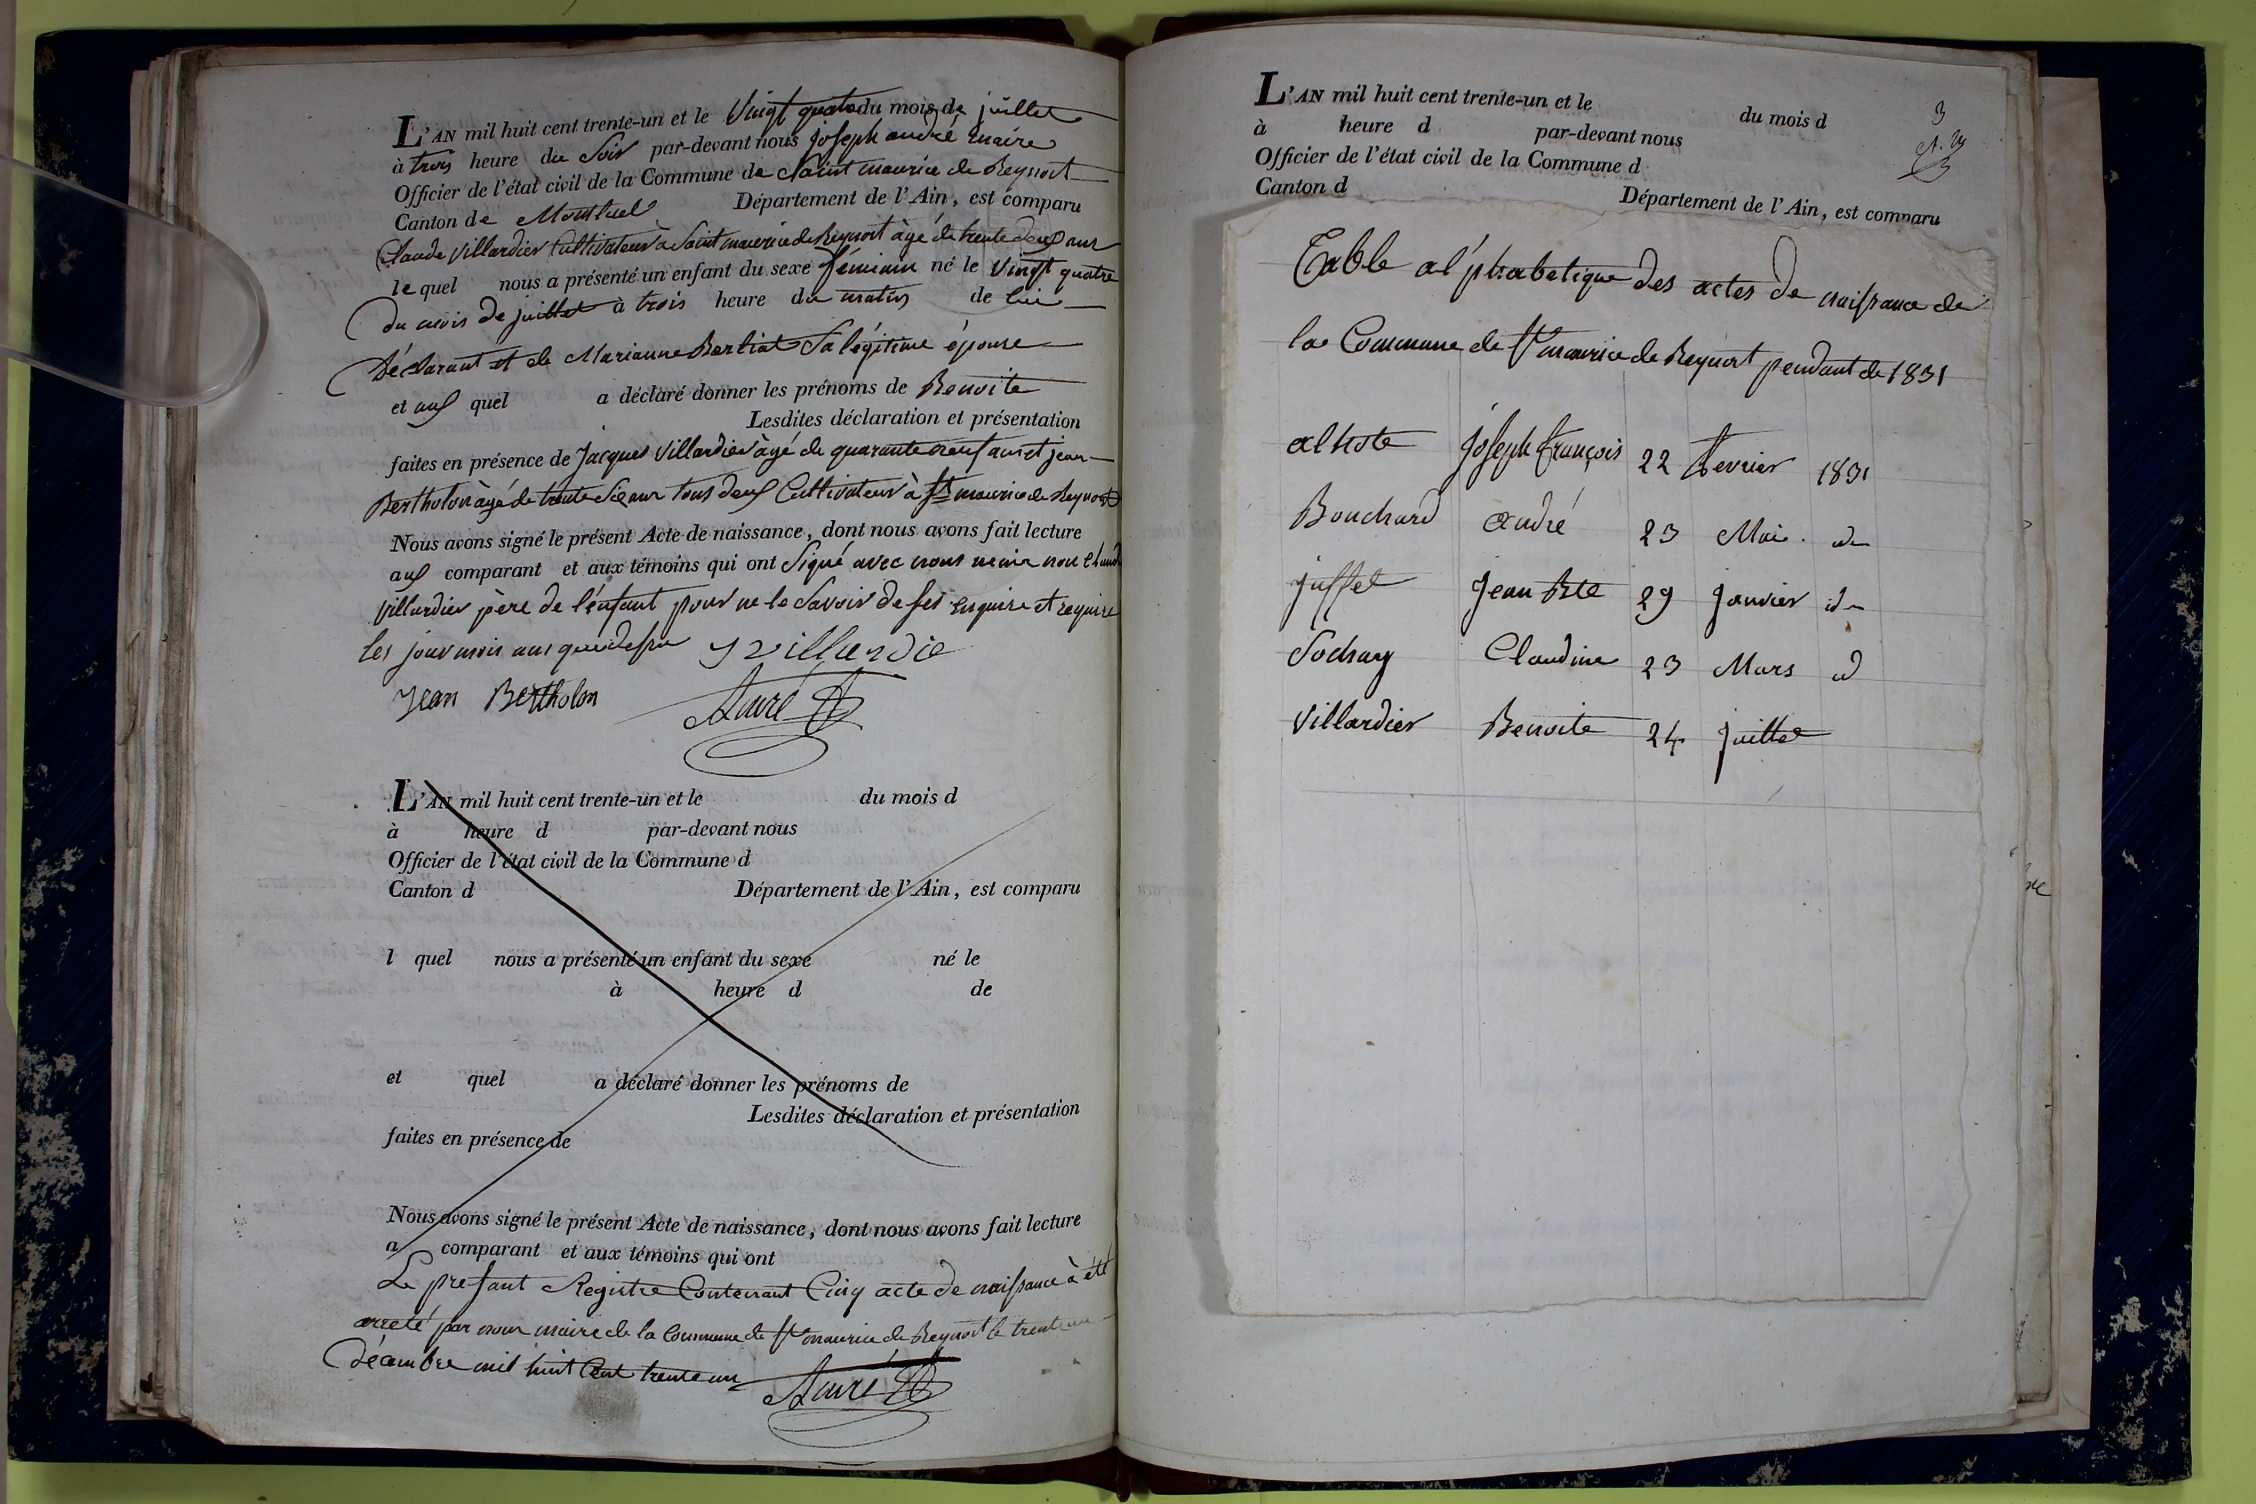 L'AN mil huit cent trente-un et le Vingt quatre du mois de juillet
à trois heure du Soir par-devant nous joseph andré maire
Officier de l'état civil de la Commune de Saint maurice de Beynost
Canton de Montluel Département de l'Ain, est comparu
Claude Villardier Cultivateur à Saint maurice de Beynost âgé de trente deux ans
le quel nous a présenté un enfant du sexe féminin né le Vingt quatre
du mois de juillet à trois heure du matin de lui
Déclarant et de Marianne Berliat Sa légitime épouse
et aux quel a déclaré donner les prénoms de Benoite
Lesdites déclaration et présentation
faites en présence de Jacques Villardier âgé de quarante neuf ans et jean
Bertholon âgé de trente Six ans tous deux Cultivateur à St maurice de Beynost
Nous avons signé le présent Acte de naissance, dont nous avons fait lecture
aux comparant et aux témoins qui ont Signé avec nous maire non Claude
Villardier père de l'enfant pour ne le Savoir de fes enquire et require
les jour mois ans que dessu J villardie
Jean Bertholon André
L'AN mil huit cent trente-un et le du mois d
à heure d par-devant nous
Officier de l'état civil de la Commune d
Canton d Département de l'Ain, est comparu
l quel nous a présenté un enfant du sexe né le
à heure d de
et quel a déclaré donner les prénoms de
Lesdites déclaration et présentation
faites en présence de
Nous avons signé le présent Acte de naissance, dont nous avons fait lecture
a comparant et aux témoins qui ont
Le presant Registre Contenant Cinq acte de naissance à été
arreté par nous maire de la Commune de St maurice de Beynost le trente un
Décembre mil huit Cent trente un André
L'AN mil huit cent trente-un et le du mois d
à heure d par-devant nous
Officier de l'état civil de la Commune d
Canton d Département de l'Ain, est comparu
3
Table alphabetique des actes de naissance de
la Commune de St maurice de Beynost pendant de 1831
alhoste Joseph françois 22 fevrier 1831
Bouchard andré 23 Mai d
juffet Jean Bte 29 Janvier d
Sochay Claudine 23 Mars d
Villardier Benoite 24 Juillet